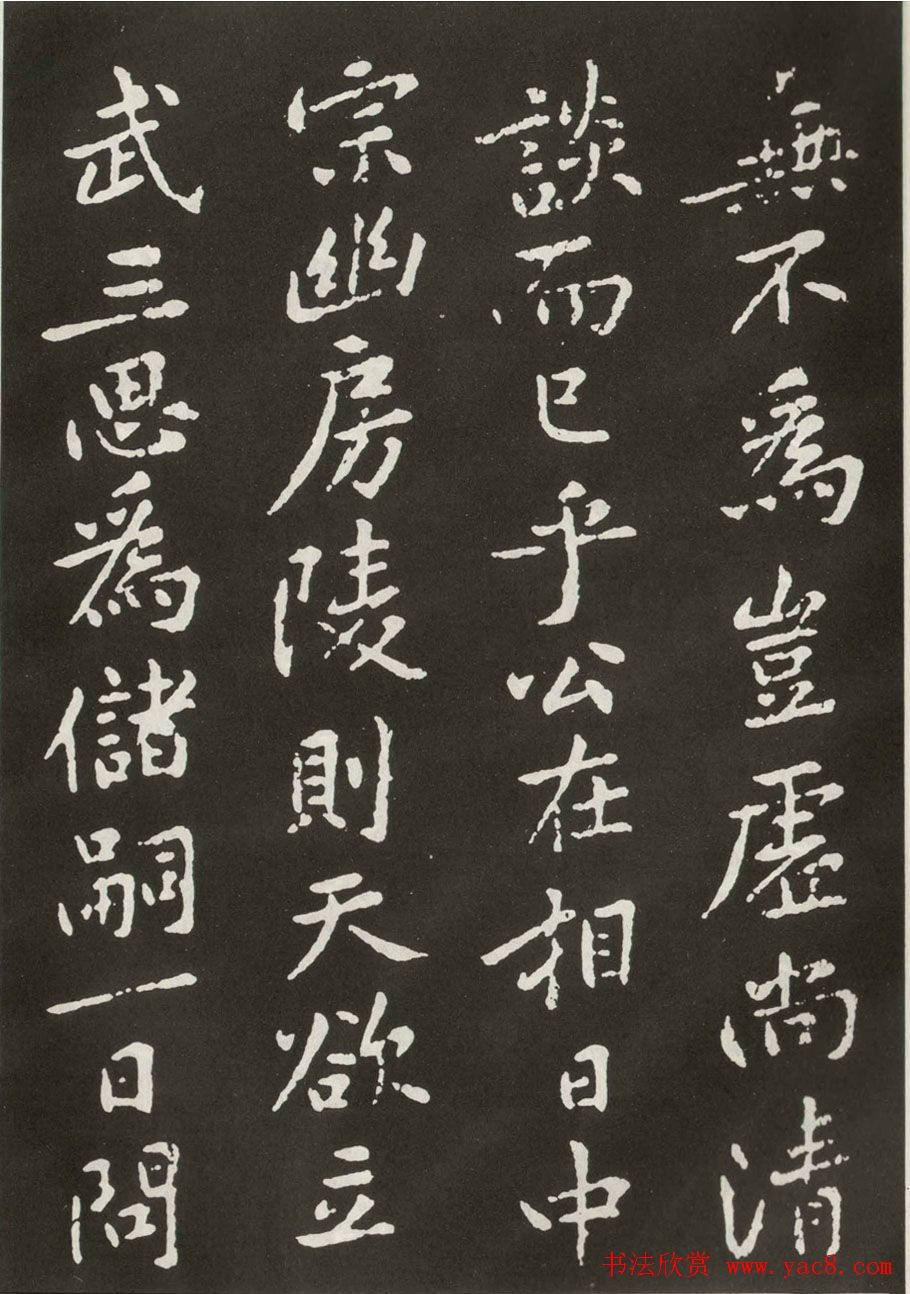 無不為豈虛尚清
談而已乎公在相日中
宗幽房陵則天欲立
武三思爲儲嗣一日問
书法欣赏 www.yac8.com